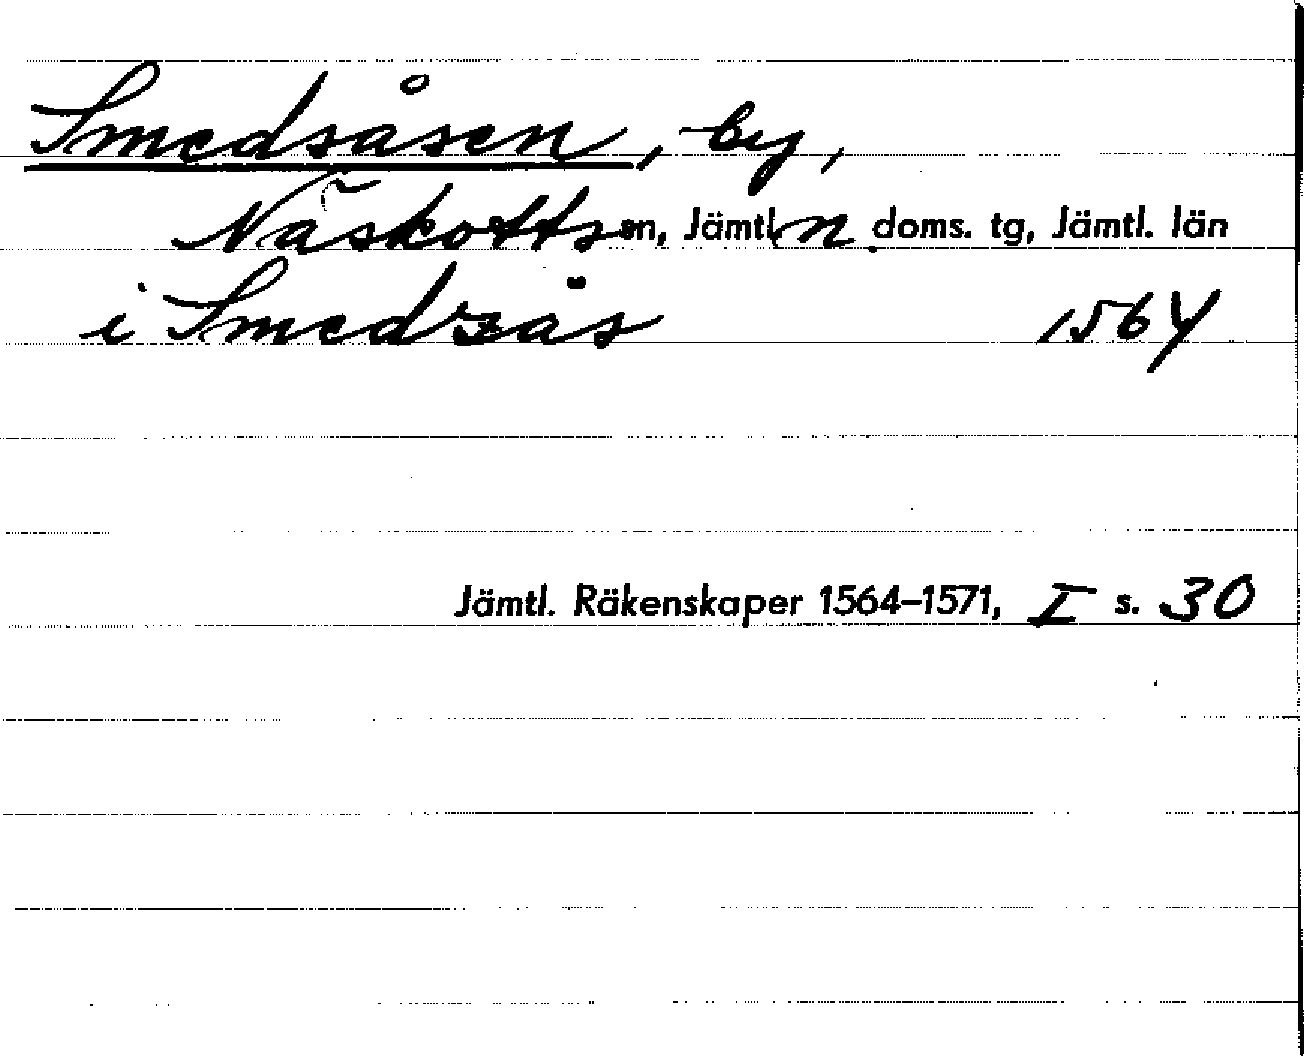 Smedsåsen, by,
Näskotts sn, Jämtl n doms. tg, Jämtl. län
i Smedzås 1564
Jämtl. Räkenskaper 1564–1571, I s. 30